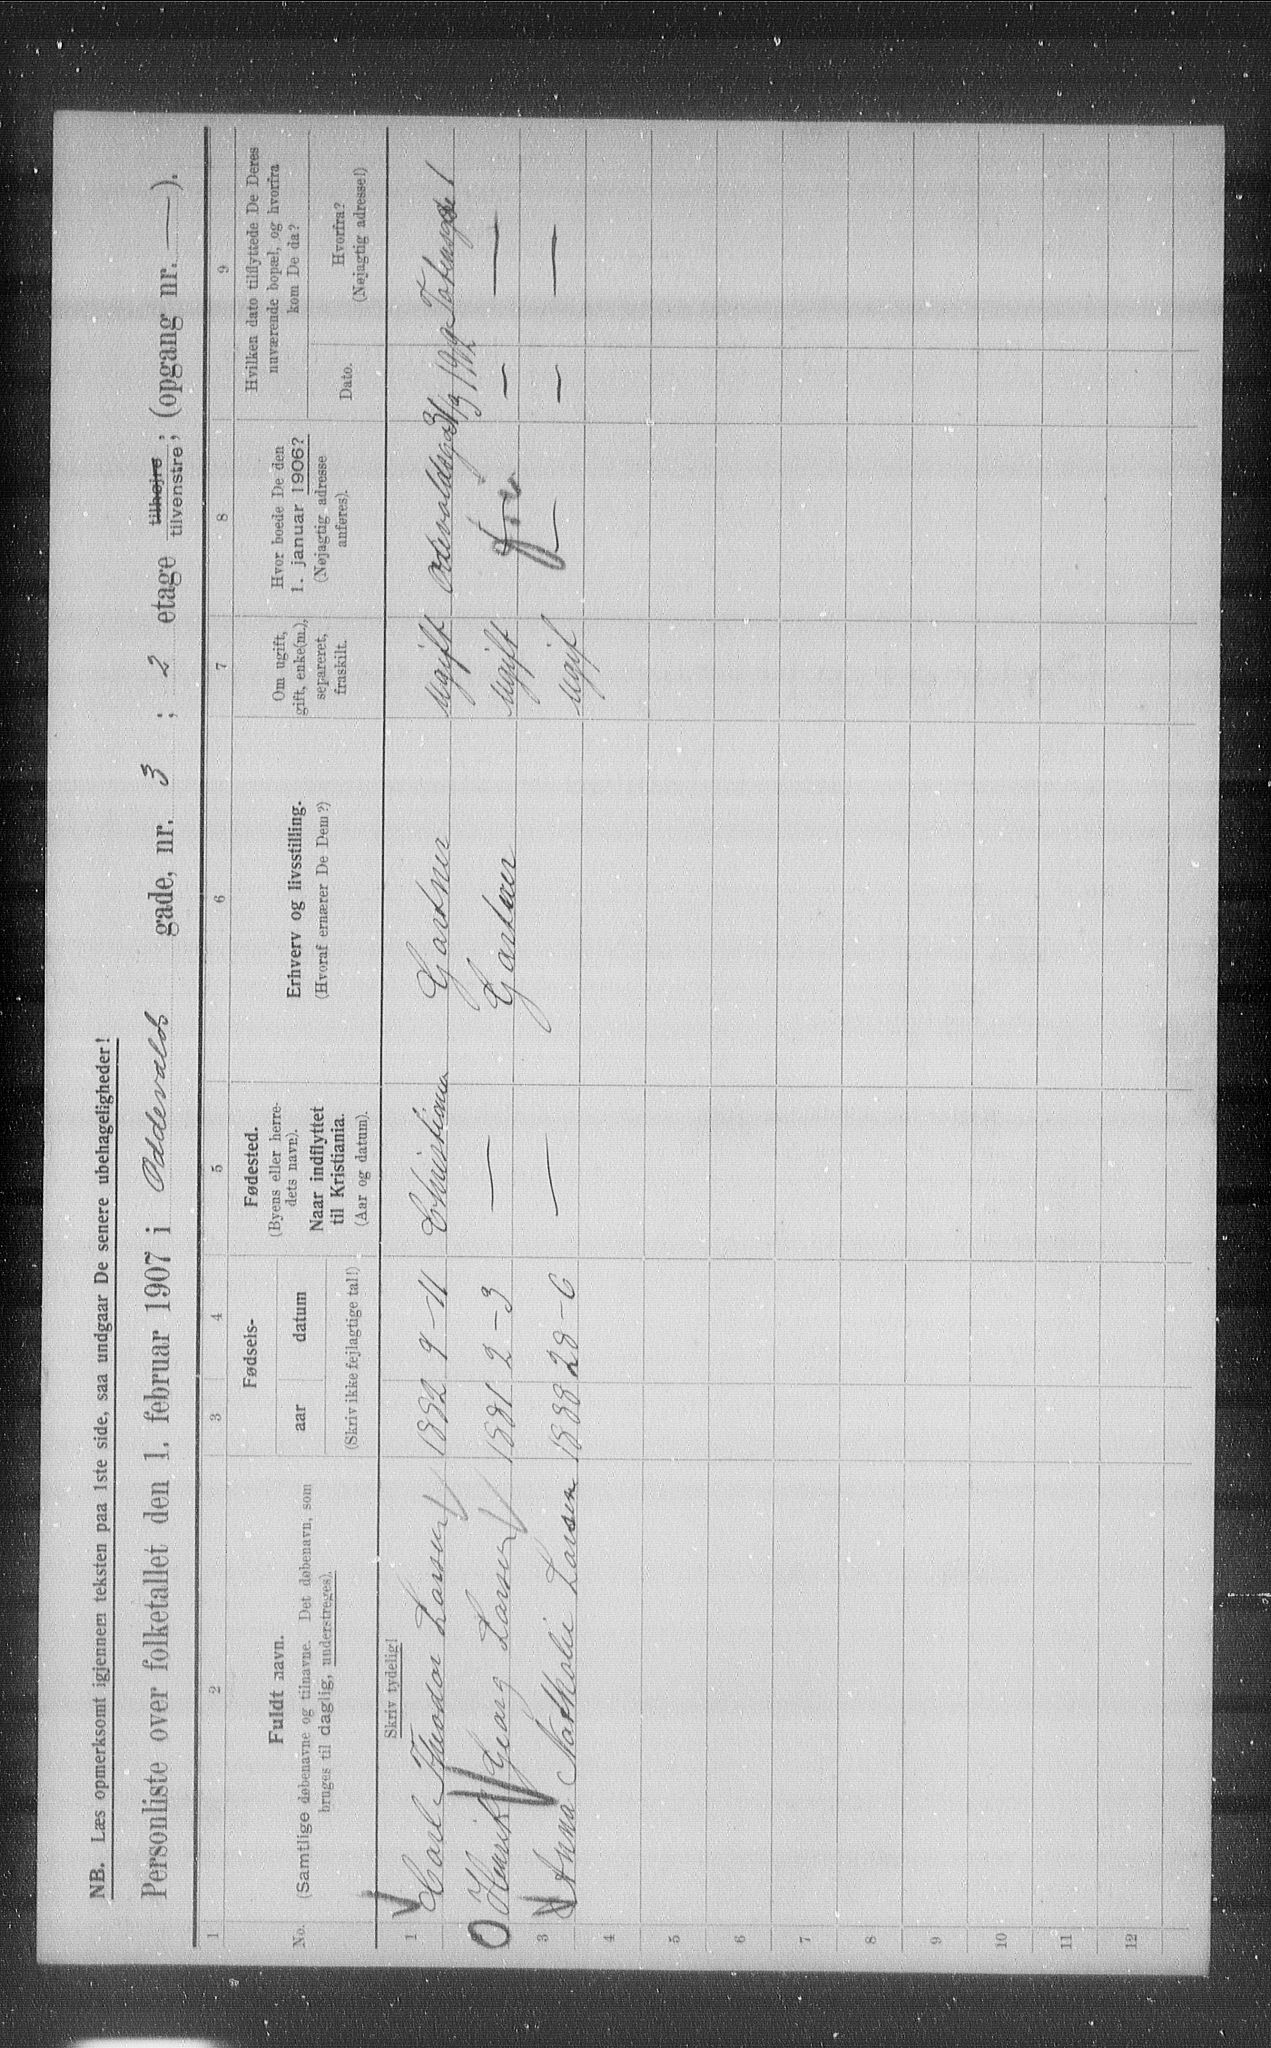 NB. Læs opmerksomt igjennem teksten paa 1ste side, saa undgaar De senere ubehageligheder!
Personliste over folketallet den 1. februar 1907 i Oddevalds gade, nr. 3 ; 2 etage tilhøjre tilvenstre; (opgang nr. —).
1 2 3 4 5 6 7 8 9
No.
Fuldt navn.
(Samtlige døbenavne og tilnavne. Det døbenavn, som
bruges til daglig, understreges).
Fødsels-
aar datum
(Skriv ikke fejlagtige tal!)
Fødested.
(Byens eller herre-
dets navn).
Naar indflyttet
til Kristiania.
(Aar og datum).
Erhverv og livsstilling.
(Hvoraf ernærer De Dem?)
Om ugift,
gift, enke(m.),
separeret,
fraskilt.
Hvor boede De den
1. januar 1906?
(Nøjagtig adresse
anføres).
Hvilken dato tilflyttede De Deres
nuværende bopæl, og hvorfra
kom De da?
Dato.
Hvorfra?
(Nøjagtig adresse!)
Skriv tydelig!
1 Carl Theodor Larsen 1882 9-11 Christiania Gartner ugift
2 Henrik Georg Larsen 1881 2-3 — Gartner ugift — —
3 Anna Nathalie Larsen 1888 28-6 — ugif — — —
4
5
6
7
8
9
10
11
12